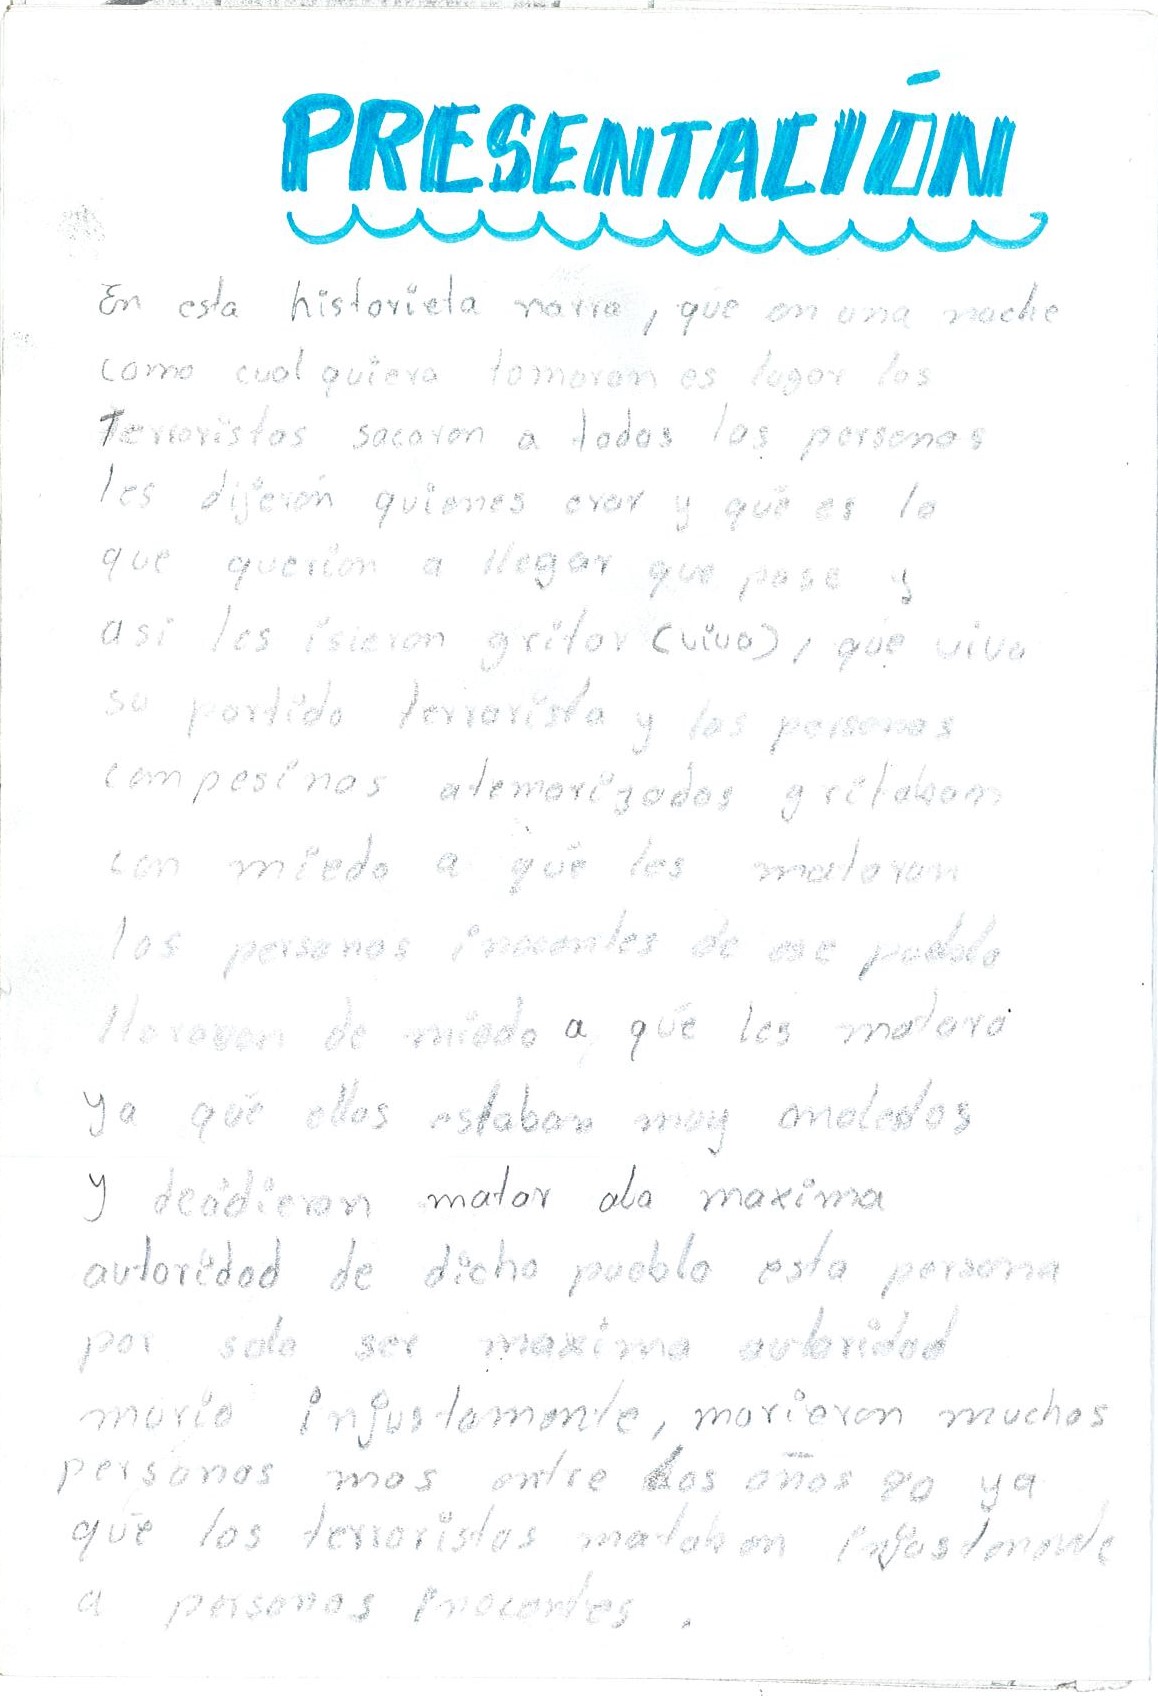 PRESENTACIÓN
En esta historieta narra, qué en una noche
como cualquiera tomaron es lugar los
Terroristas sacaron a todas las personas
les dijerón quienes eran y qué es lo
que querian a llegar que pase y
asi les isieron gritar (viva), qué viva
su partido terrorista y las personas
campesinas atemorizados gritaban
con miedo a qué les mataran
las personas inocentes de ese pueblo
lloraron de miedo a qué les matara
ya qué ellos estaban muy molestos
y decidieron matar ala maxima
autoridad de dicho pueblo esta persona
por solo ser maxima autoridad
murio injustamente, murieron muchas
personas mas entre los años 80 ya
qué los terroristas mataban injustamente
a personas inocentes.